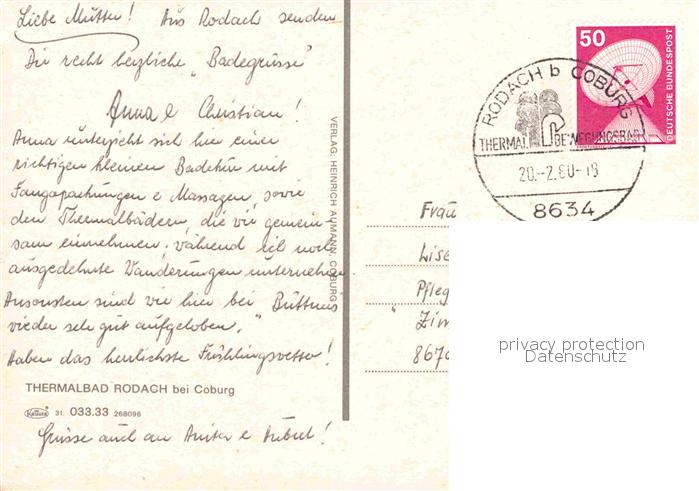 Liebe Mutter! Aus Rodach senden
Dir recht herzliche "Badegrüsse"
Anna & Christian!
Anna unterzieht sich hier einer
richtigen kleinen Badekur mit
Fangopackungen & Massagen, sowie
den Thermalbädern, die wir gemein-
sam einnehmen; während ich noch
ausgedehnte Wanderungen unternehme.
Ansonsten sind wir hier bei Büttners
wieder sehr gut aufgehoben."
Haben das herrlichste Frühlingswetter!
THERMALBAD RODACH bei Coburg
Krüger 31. 033.33 268096
Grüsse auch an Anita &
VERLAG: HEINRICH AUMANN, COBURG
50
DEUTSCHE BUNDESPOST
RODACH b COBURG
THERMAL BEWEGUNGSBAD
20.-2.80-18
8634
Frau
Lise
Pfleg
"Zim
8670
privacy protection
Datenschutz